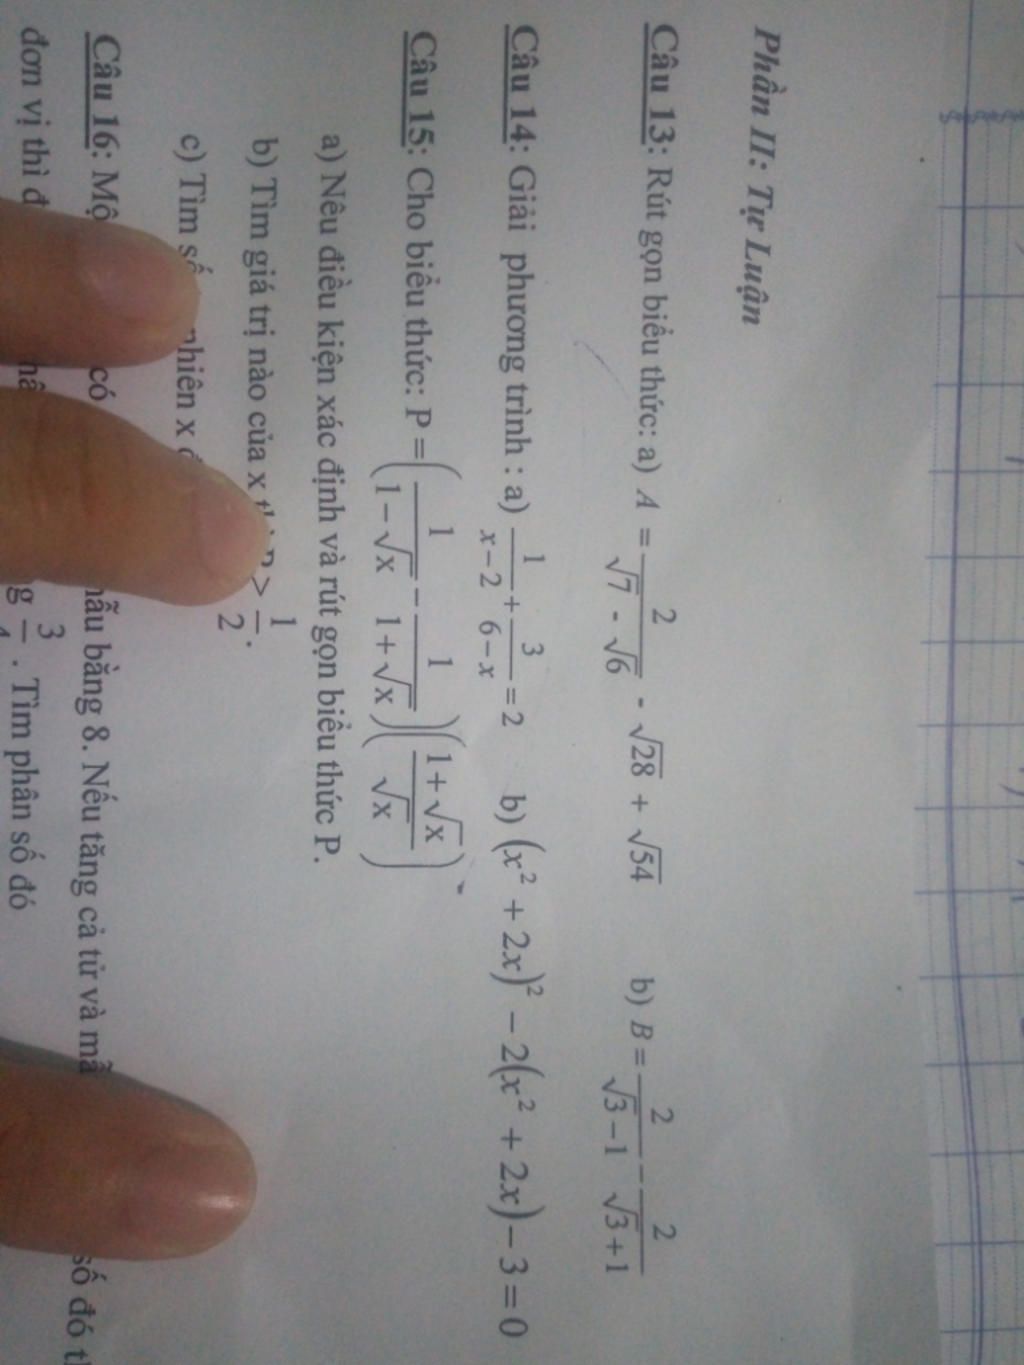 Phần II: Tự Luận
Câu 13: Rút gọn biểu thức: a) A = 2/(√7 - √6) - √28 + √54 b) B = 2/(√3 − 1) − 2/(√3 + 1)
Câu 14: Giải phương trình : a) 1/(x − 2) + 3/(6 − x) = 2 b) (x² + 2x)² − 2(x² + 2x) − 3 = 0
Câu 15: Cho biểu thức: P = (1/(1 − √x) − 1/(1 + √x))((1 + √x)/√x)
a) Nêu điều kiện xác định và rút gọn biểu thức P.
b) Tìm giá trị nào của x > 1/2.
c) Tìm nhiên x
Câu 16: có bằng 8. Nếu tăng cả tử và số đó
đơn vị thì . Tìm phân số đó